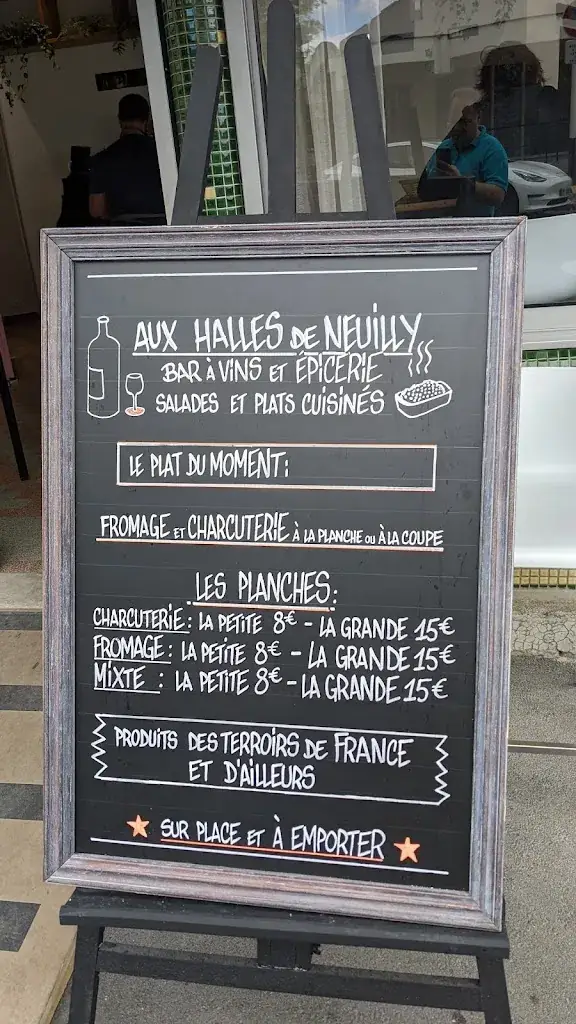 AUX HALLES DE NEUILLY
BAR À VINS ET ÉPICERIE
SALADES ET PLATS CUISINÉS
LE PLAT DU MOMENT:
FROMAGE ET CHARCUTERIE À LA PLANCHE OU À LA COUPE
LES PLANCHES:
CHARCUTERIE: LA PETITE 8€ - LA GRANDE 15€
FROMAGE: LA PETITE 8€ - LA GRANDE 15€
MIXTE : LA PETITE 8€ - LA GRANDE 15€
PRODUITS DES TERROIRS DE FRANCE
ET D'AILLEURS
SUR PLACE ET À EMPORTER